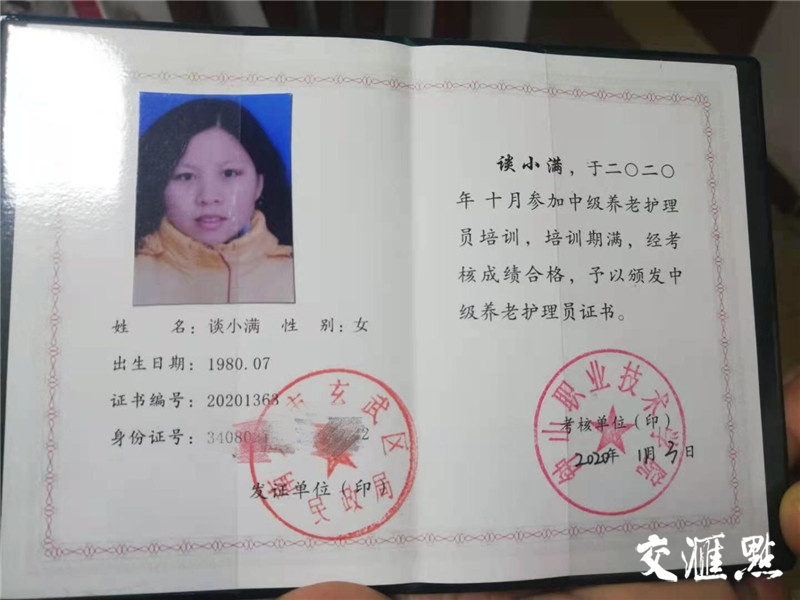 姓　　名：谈小满　性　别：女
出生日期：1980.07
证书编号：20201363
身份证号：34080 2
发证单位（印）
市玄武区
民政局
谈小满，于二〇二〇
年十月参加中级养老护理
员培训，培训期满，经考
核成绩合格，予以颁发中
级养老护理员证书。
钟山职业技术学院
考核单位（印）
2020年 11月 3日
交滙點